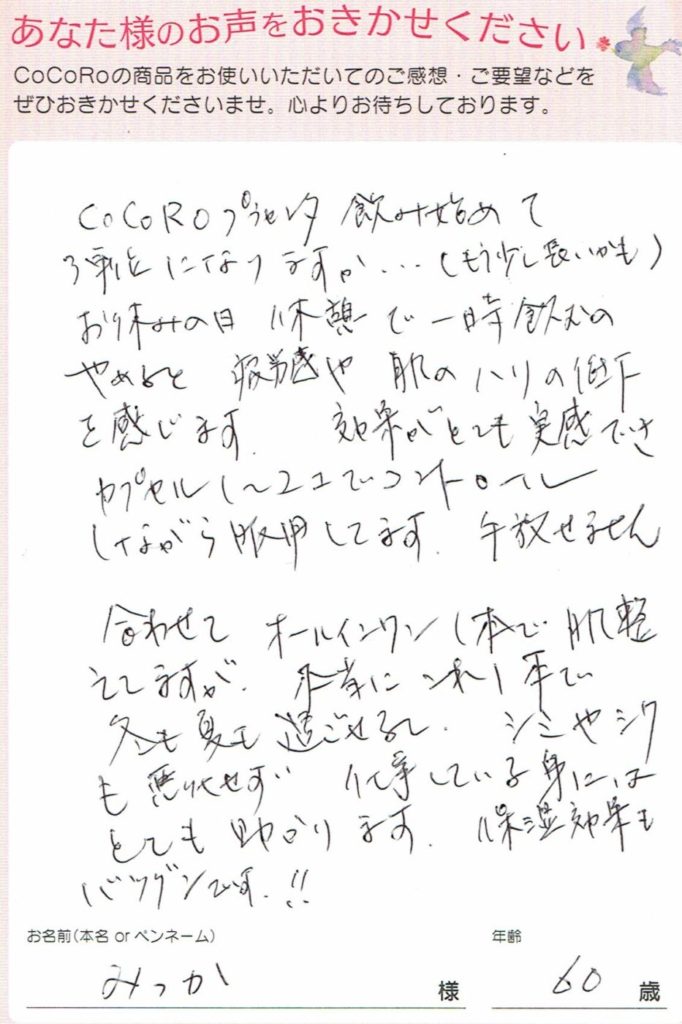 あなた様のお声をおきかせください
CoCoRoの商品をお使いいただいてのご感想・ご要望などを
ぜひおきかせくださいませ。心よりお待ちしております。
CoCoRoプラセンタ 飲み始めて
3年位になりますが…(もう少し長いかも)
お休みの日 休憩で一時飲むの
やめると 疲労感や 肌のハリの低下
を感じます. 効果がとても実感でき
カプセル1〜2コでコントロール
しながら服用してます. 手放せません
合わせて オールインワン1本で肌整
えてますが. 本当にこれ1本で
冬も夏も過ごせるし. シミやシワ
も悪化せず 仕事している身には
とても助かります. 保湿効果も
バツグンです.!!
お名前(本名 or ペンネーム)
みっか 様
年齢
60 歳